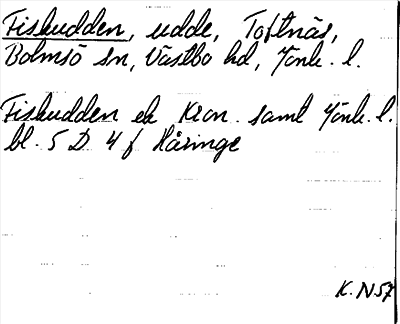 Fiskudden, udde, Toftnäs,
Bolmsö sn, Västbo hd, Jönk. l.
Fiskudden ek Kron. samt Jönk. l.
bl. 5 D 4 f Håringe
K. N 57